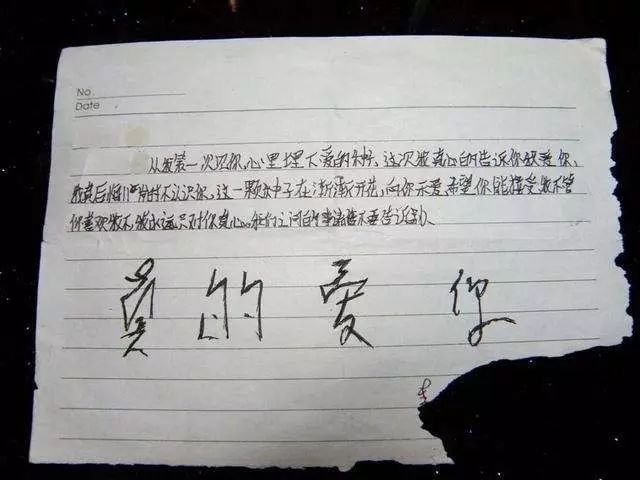 No
Date
从我第一次见你,心里埋下爱的种子,这次我真心的告诉你我爱你,
我真后悔 为时不认识你,这一颗种子在渐渐开花,向你示爱,希望你能接受我不管
你喜欢我不我永远只对你真心。我们之间的事请谁不要告诉别人
真的爱你
李